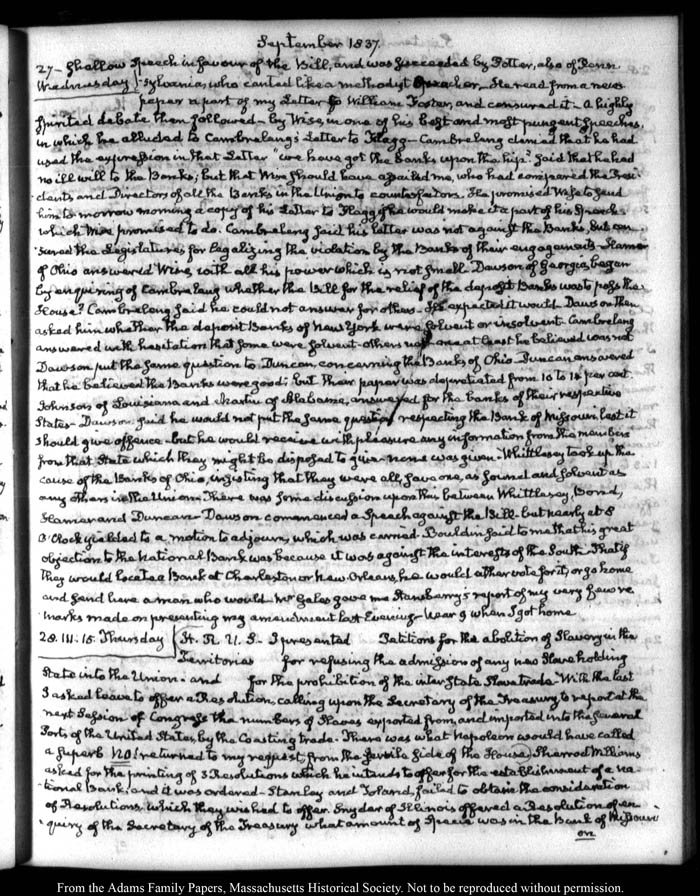 September 1837.
27 - shallow speech in favour of the Bill, and was succeeded by Potter, also of Penn
Wednesday sylvania, who canted like a methodist preacher. He read from a news
paper a part of my Letter to William Foster, and censured it - A highly
spirited debate then followed - by Wise, in one of his best and most pungent speeches,
in which he alluded to Cambreleng's Letter to Flagg - Cambreleng denied that he had
used the expression in that Letter "we have got the banks upon the hip." said that he had
no ill will to the Banks; but that Wise should have assailed me, who had compared the Presi-
dents and Directors of all the Banks in the Union to counterfeiters. He promised Wise to send
him to-morrow morning a copy of his Letter to Flagg if he would make it a part of his speech
which Wise promised to do. Cambreleng said his letter was not against the Banks, but cen-
sured the Legislatures for legalizing the violation by the Banks of their engagements - Hamer
of Ohio answered Wise, with all his power which is not small. Dawson of Georgia, began
by enquiring of Cambreleng whether the Bill for the relief of the deposit Banks was to pass the
House? Cambreleng said he could not answer for others - He expected it would. Dawson then
asked him whether the deposit Banks of New York were solvent or insolvent - Cambreleng
answered with hesitation that some were solvent - others not - one at least he believed was not
Dawson put the same question to Duncan, concerning the Banks of Ohio. Duncan answered
that he believed the Banks were good; but their paper was depretiated from 10 to 12 per cent
Johnson of Louisiana and Martin of Alabama, answered for the banks of their respective
States - Dawson said he would not put the same question respecting the Bank of Missouri lest it
should give offence - but he would receive with pleasure any information from the members
from that State which they might be disposed to give - none was given. Whittlesey took up the
cause of the Banks of Ohio, insisting that they were all, save one, as sound and solvent as
any others in the Union. There was some discussion upon this between Whittlesey, Bond,
Hamer and Duncan - Dawson commenced a Speech against the Bill - but nearly at 8
O'Clock yielded to a motion to adjourn, which was carried. Bouldin said to me that his great
objection to the National Bank was because it was against the interests of the South. That if
they would locate a Bank at Charleston or New Orleans, he would either vote for it, or go home
and send here a man who would. Mr Gales gave me Stansberry's report of my very few re
marks made on presenting my amendment last Evening - Near 9 when I got home
28. III. 15. Thursday H. R. U. S. - I presented Petitions for the abolition of Slavery in the
Territories for refusing the admission of any new Slave holding
State into the Union - and for the prohibition of the inter State Slave trade - With the last
I asked leave to offer a Resolution, calling upon the Secretary of the Treasury to report at the
next Session of Congress the numbers of Slaves exported from, and imported into the several
Ports of the United States, by the Coasting trade. There was what Napoleon would have called
a superb NO! returned to my request, from the servile side of the House. Sherrod Williams
asked for the printing of 3 Resolutions which he intends to offer for the establishment of a na-
tional Bank, and it was ordered - Stanley and Toland, failed to obtain the consideration
of Resolutions which they wished to offer. Snyder of Illinois offered a Resolution of en-
quiry of the Secretary of the Treasury what amount of specie was in the Bank of Missouri
on
From the Adams Family Papers, Massachusetts Historical Society. Not to be reproduced without permission.